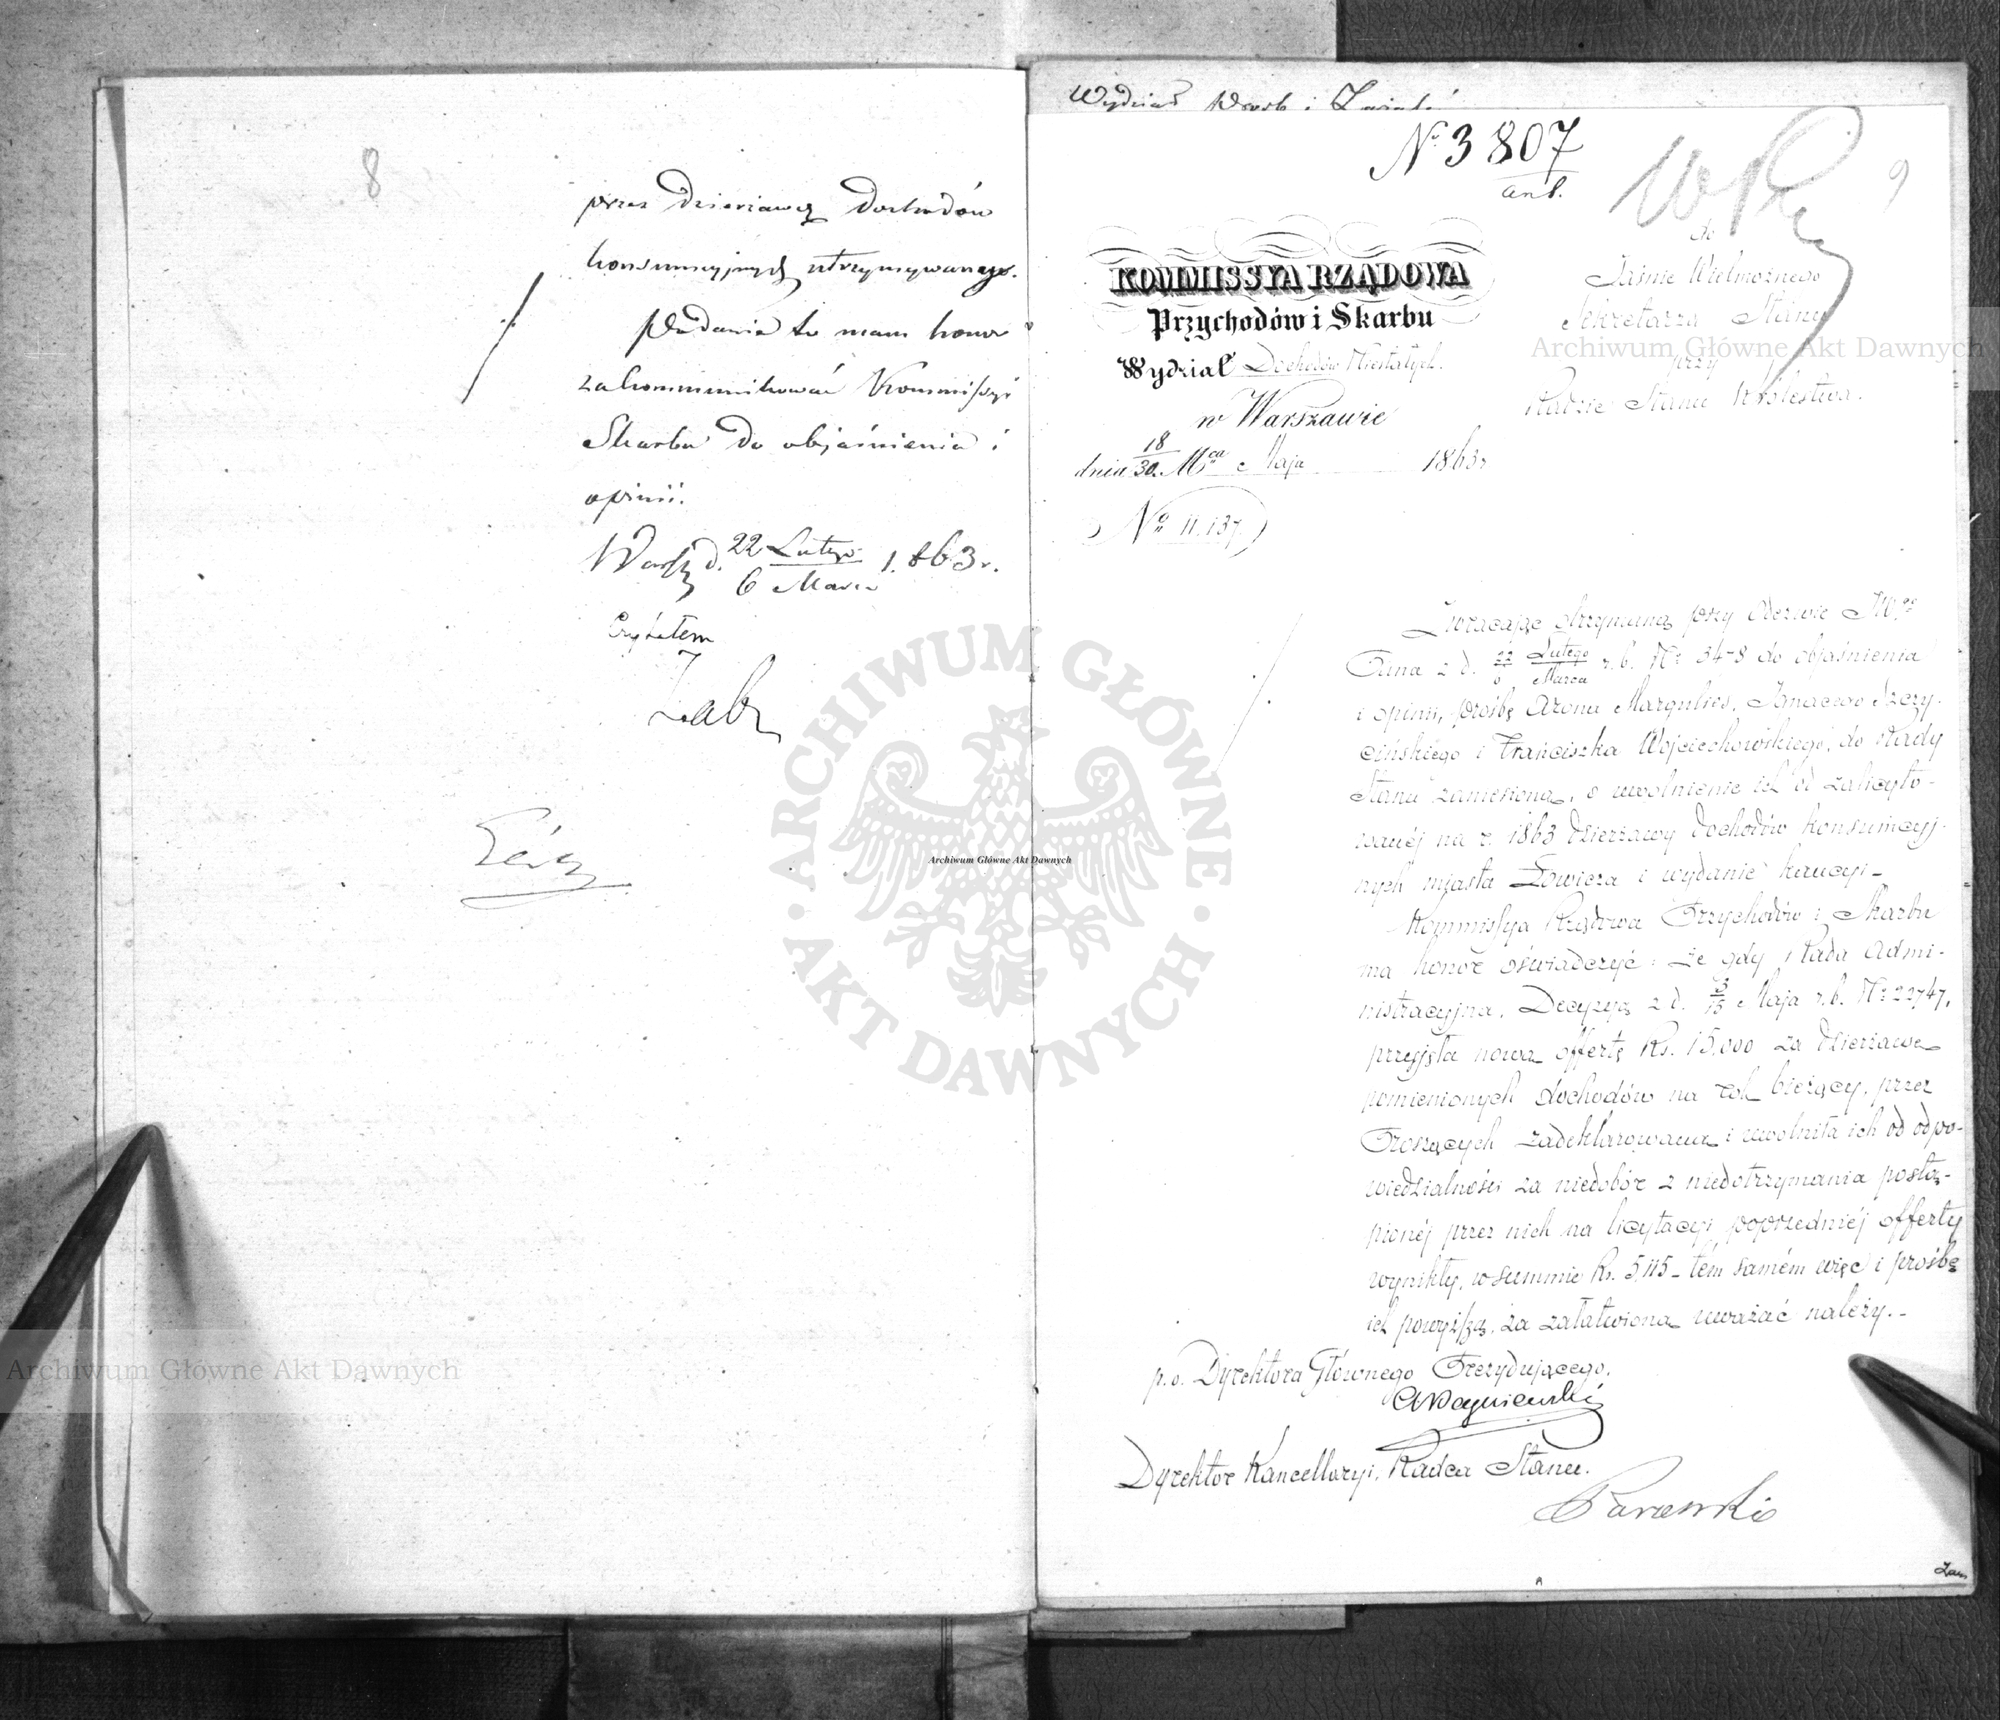 8
przez dzierżawcę dochodów
konsumcyjnych utrzymywanego.
Podanie to mam honor
zakommunikować Kommissyi
Skarbu do objaśnienia i
opinii.
Warsz. d. 22 Lutego / 6 Marca 1863 r.
Czytałem
Wydział
N. 3807
ant.
9
do
Jaśnie Wielmożnego
Sekretarza Stanu
przy
Radzie Stanu Królestwa.
KOMMISSYA RZĄDOWA
Przychodów i Skarbu
Wydział Dochodów Niestałych.
w Warszawie
dnia 18/30 Mca Maja 1863 r
No 11.137
Zwracając otrzymaną przy Odezwie JW.
Pana z d. 22 Lutego / 6 Marca r.b. Nr 348 do objaśnienia
i opinii, prośbę Arona Margulies, Ignacego Szczy-
cińskiego i Franciszka Wojciechowskiego, do Rady
Stanu zaniesioną, o uwolnienie ich od zalicyto-
wanéj na r. 1863 dzierżawy dochodów konsumcyj-
nych miasta Łowicza i wydanie kaucyi –
Kommissya Rządowa Przychodów i Skarbu
ma honor oświadczyć: że gdy Rada Admi-
nistracyjna, Decyzyą z d. 3/15 Maja r.b. Nr 22747,
przyjęła nową offertę Rs. 15,000 za dzierżawę
pomienionych dochodów na rok bieżący, przez
Proszących zadeklarowaną i uwolniła ich od odpo-
wiedzialności za niedobór z niedotrzymania postą-
pionéj przez nich na licytacyi poprzedniéj offerty
wynikły, w summie Rs. 5,115 – tém samém więc i prośbę
ich powyższą, za załatwioną uważać należy. –
p.o. Dyrektora Głównego Prezydującego,
Dyrektor Kancellaryi, Radca Stanu.
Archiwum Główne Akt Dawnych
Archiwum Główne Akt Dawnych
Archiwum Główne Akt Dawnych
ARCHIWUM GŁÓWNE · AKT DAWNYCH ·